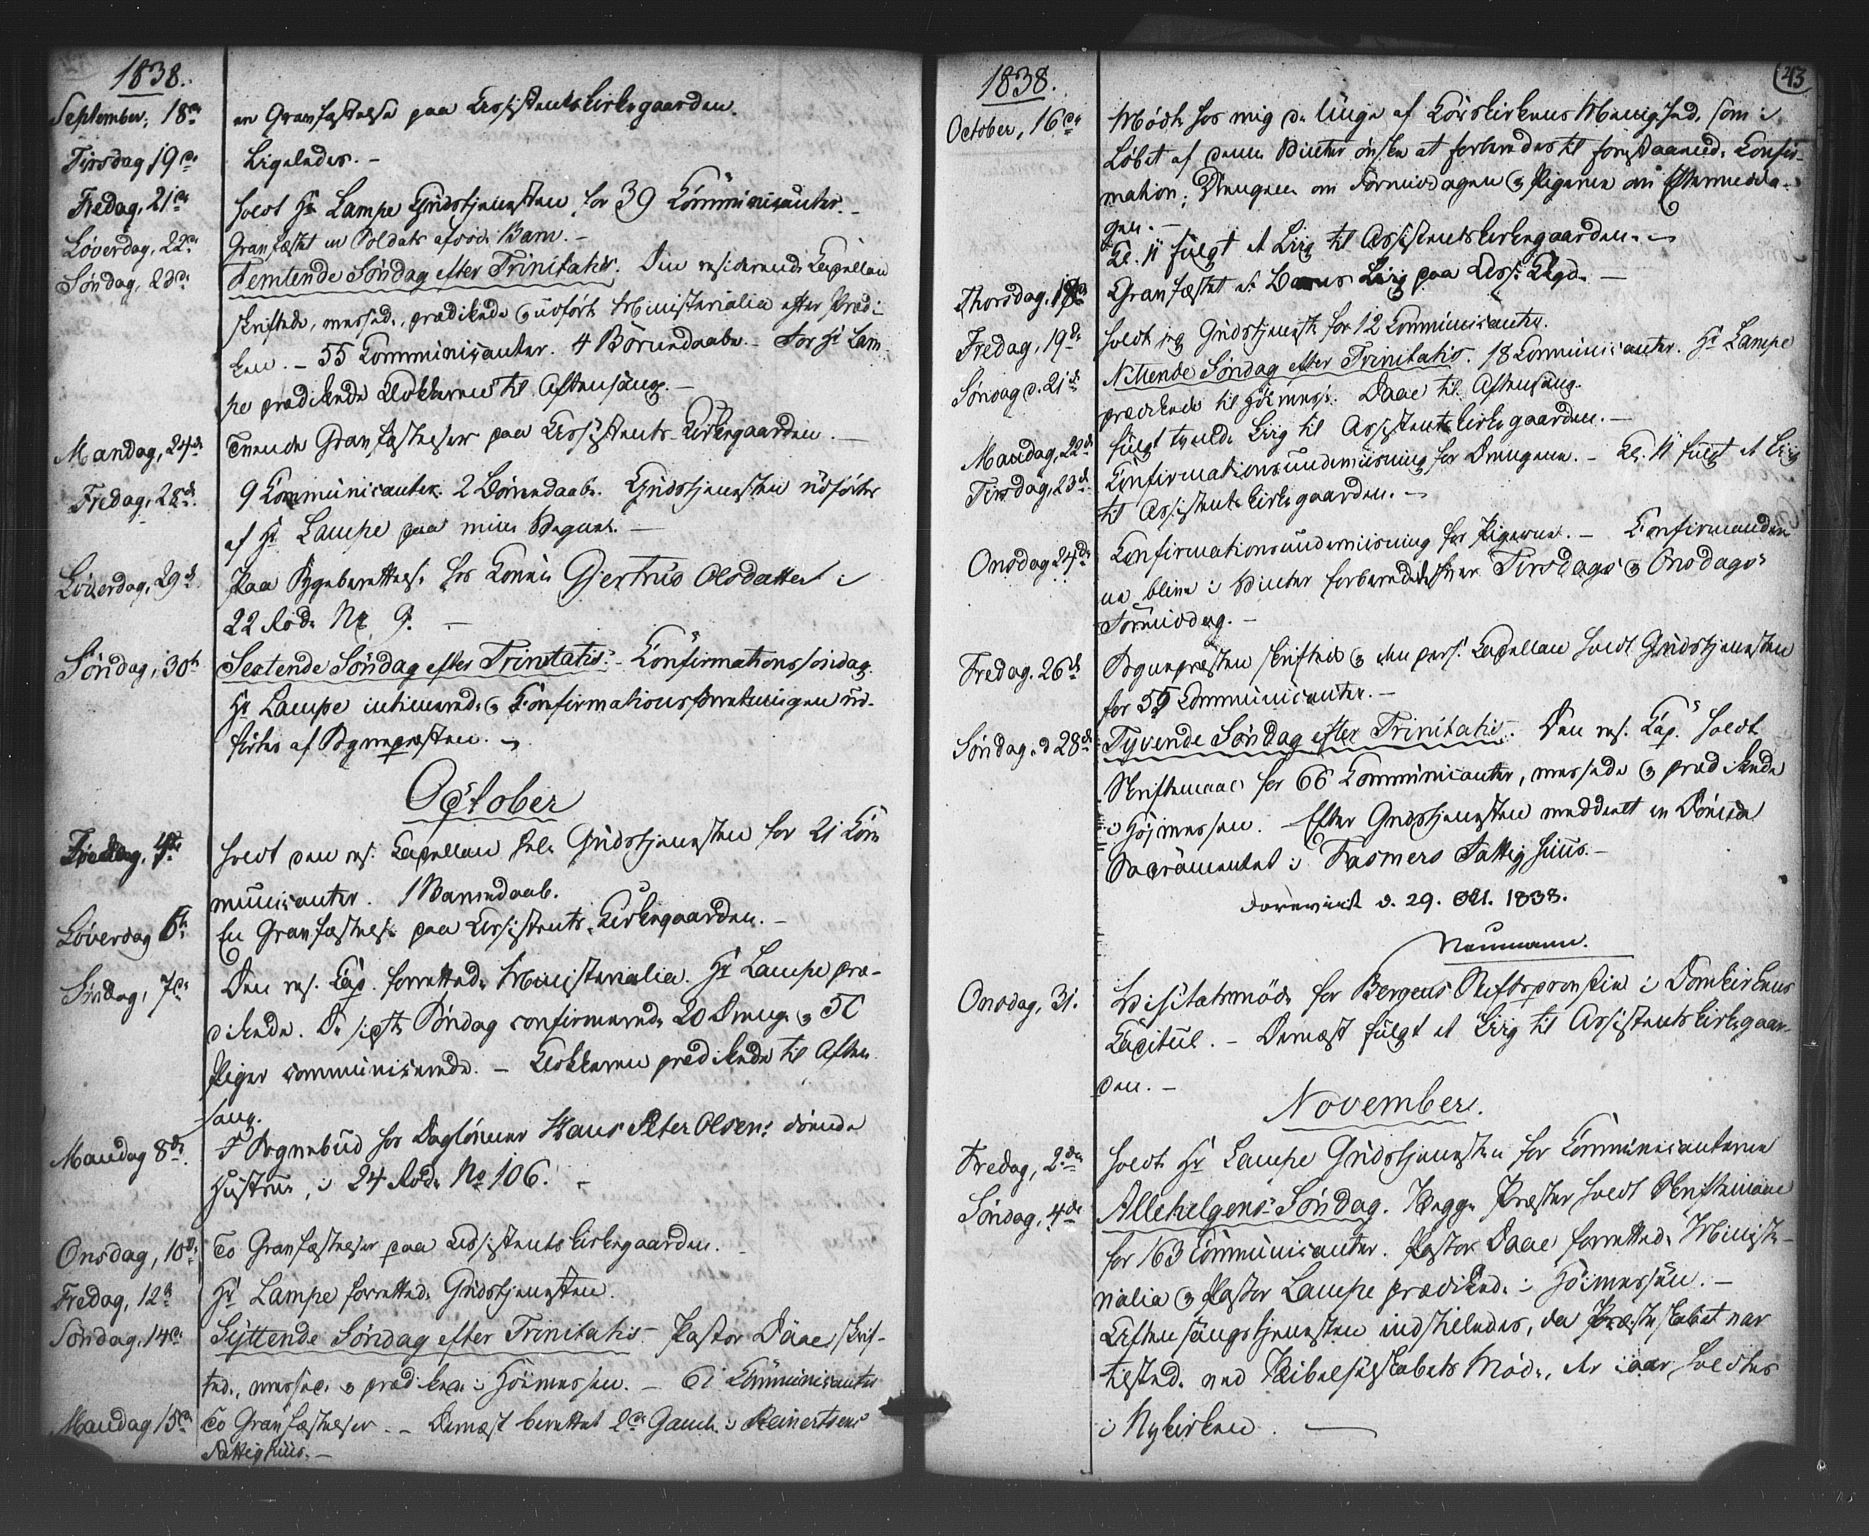 1838.
September, 18de
en Gravfæstelse paa Assistentskirkegaarden.
Tirsdag 19de
Ligeledes. –
Fredag, 21de
holdt Hr Lampe Gudstjenesten for 39 Communicanter. –
Løverdag, 22de
Gravfæstet en Soldats Barn. –
Søndag, 23de
Femtende Søndag efter Trinitatis. Den residerende Capellan
skriftede, messede, prædikede og udførte Ministerialia efter Prædi-
ken. – 55 Communicanter. 4 Børnedaabe. – For Hr Lam-
pe prædikede Klokkeren til Aftensang. –
Mandag, 24de
Tvende Gravfæstelser paa Assistents-Kirkegaarden. –
Fredag, 28de
9 Communicanter. 2 Børnedaab. Gudstjenesten udførtes
af Hr Lampe paa mine Vegne. –
Løverdag, 29de
Paa Sygeberettelse hos Konen Gjertrud Olsdatter i
22 Rode No 9. –
Søndag, 30te
Sextende Søndag efter Trinitatis. – Confirmationssøndag.
Hr Lampe intimerede og Confirmationsforretningen ud-
førtes af Sognepræsten. –
October
Fredag,
holdt den res. Capellan Gudstjenesten for 21 Com-
municanter. 1 Barnedaab.
Løverdag 6te
En Gravfæstelse paa Assistents-Kirkegaarden. –
Søndag, 7de
Den res. Cap. forrettede Ministerialia. Hr Lampe præ-
dikede. De sidste Søndag confirmerede 20 Drenge og 50
Piger communicerede. – Klokkeren prædikede til Aften-
sang.
Mandag 8de
I Sognebud hos Dagløner Hans Peter Olsens døende
Hustrue, i 24 Rode No 106. –
Onsdag, 10de
To Gravfæstelser paa Assistentskirkegaarden.
Fredag, 12te
Hr Lampe forrettede Gudstjenesten.
Søndag, 14de
Syttende Søndag efter Trinitatis – Pastor Daae skrif-
tede, messede og prædikede i Høimessen. – 61 Communicanter
Mandag 15de
To Gravfæstelser. – Dernæst berettet 2de Gamle i Reinertsens
Fattighuus. –
43
1838.
October, 16de
Mødte hos mig de unge af Korskirkens Menighed, som i
Løbet af denne Vinter ønske at forberedes til forestaaende Confir-
mation; Drengene om Formiddagen og Pigerne om Eftermidda-
gen. –
Kl. 11 fulgt et Liig til Assistentskirkegaarden. –
Thorsdag, 18de
Gravfæstet et Barns Liig paa Ass. Kgd. –
Fredag, 19de
holdt jeg Gudstjeneste for 12 Communicanter.
Søndag d. 21de
Nittende Søndag efter Trinitatis. 18 Communicanter. Hr Lampe
prædikede til Høimesse. Daae til Aftensang.
Mandag, 22de
fulgt tvende Liig til Assistentskirkegaarden. –
Tirsdag, 23de
Confirmationsunderviisning for Drengene. – Kl. 11 fulgt et Liig
til Assistentskirkegaarden. –
Onsdag 24de
Confirmationsunderviisning for Pigerne. – Confirmander-
ne blive i Vinter forberedede hver Tirsdags og Onsdags-
Formiddag. –
Fredag. 26de
Sognepræsten skriftede og den pers. Capellan holdt Gudstjenesten
for 55 Communicanter. –
Søndag, d 28de
Tyvende Søndag efter Trinitatis. Den res. Cap. holdt
Skriftemaal for 66 Communicanter, messede og prædikede
i Høimessen. – Efter Gudstjenesten meddeelt en Døende
Sacramentet i Fasmers Fattighuus. –
Foreviist d. 29. Oct. 1838.
Neumann.
Onsdag, 31.
Visitatsmøde for Bergens Stiftsprovstie i Domkirkens
Capitul. – Dernæst fulgt et Liig til Assistentskirkegaar-
den. –
November.
Fredag, 2den
holdt Hr Lampe Gudstjenesten for Communicanterne
Søndag, 4de
Allehelgens-Søndag. Begge Præster holdt Skriftemaal
for 163 Communicanter. Pastor Daae forrettede Ministe-
rialia og Pastor Lampe prædikede i Høimessen. –
Aftensangstjenesten indstilledes, da Præsteskabet var
tilstede ved Bibelselskabets Møde, der i aar holdtes
i Nykirken.